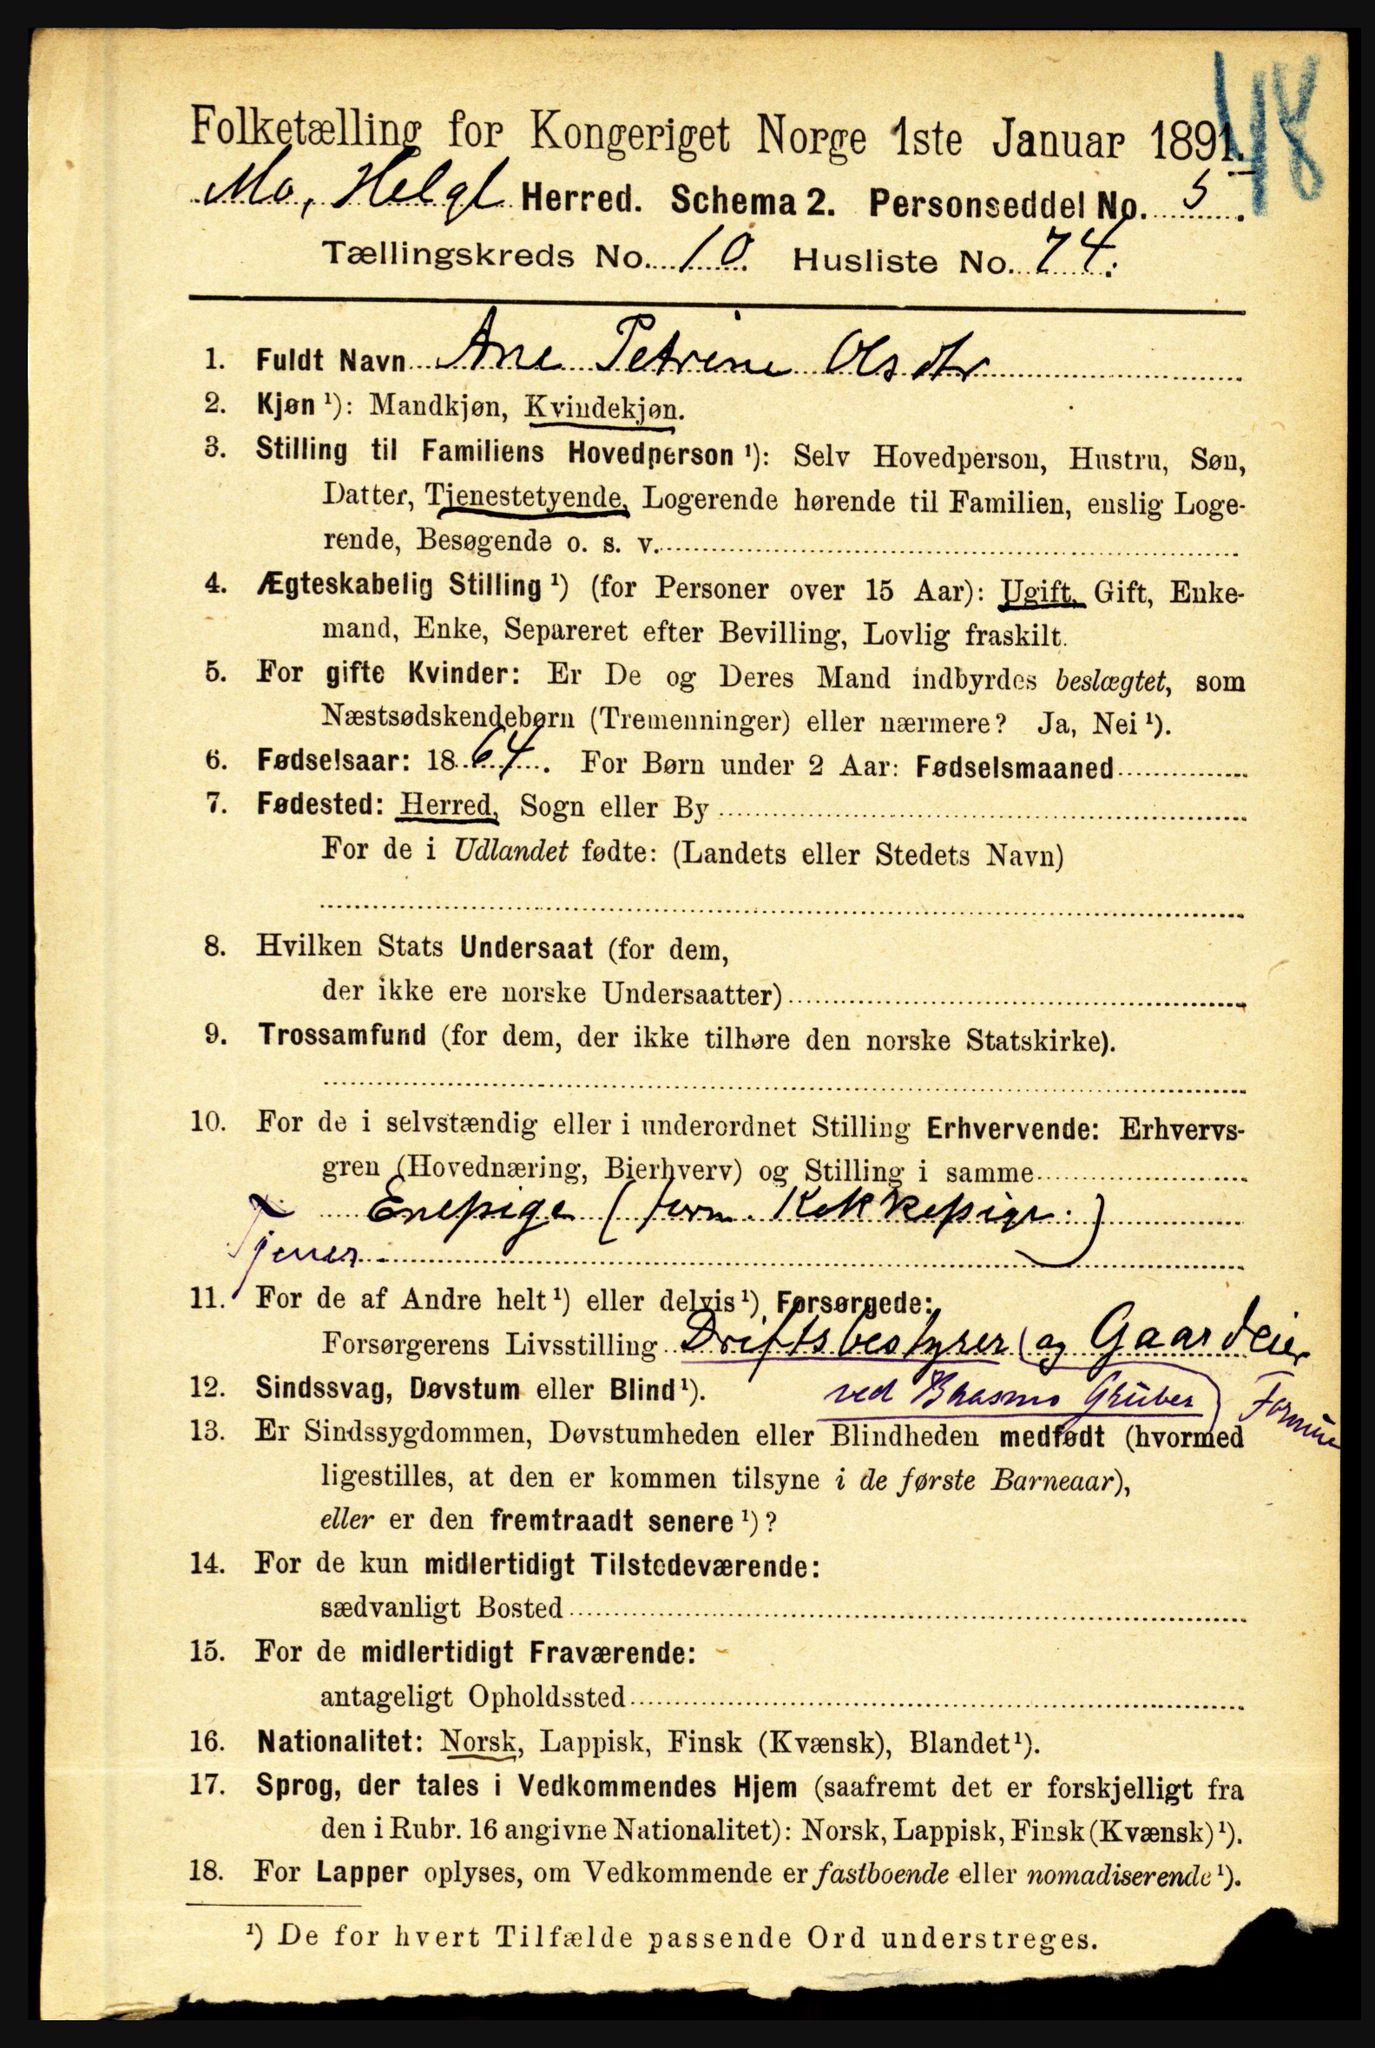 48
Folketælling for Kongeriget Norge 1ste Januar 1891.
Mo, Helgl Herred. Schema 2. Personseddel No. 5.
Tællingskreds No. 10 Husliste No. 74.
1. Fuldt Navn Ane Petrine Olsdtr
2. Kjøn ¹): Mandkjøn, Kvindekjøn.
3. Stilling til Familiens Hovedperson ¹): Selv Hovedperson, Hustru, Søn,
Datter, Tjenestetyende, Logerende hørende til Familien, enslig Loge-
rende, Besøgende o. s. v.
4. Ægteskabelig Stilling ¹) (for Personer over 15 Aar): Ugift, Gift, Enke-
mand, Enke, Separeret efter Bevilling, Lovlig fraskilt.
5. For gifte Kvinder: Er De og Deres Mand indbyrdes beslægtet, som
Næstsødskendebørn (Tremenninger) eller nærmere? Ja, Nei ¹).
6. Fødselsaar: 1864. For Børn under 2 Aar: Fødselsmaaned
7. Fødested: Herred, Sogn eller By
For de i Udlandet fødte: (Landets eller Stedets Navn)
8. Hvilken Stats Undersaat (for dem,
der ikke ere norske Undersaatter)
9. Trossamfund (for dem, der ikke tilhøre den norske Statskirke).
10. For de i selvstændig eller i underordnet Stilling Erhvervende: Erhvervs-
gren (Hovednæring, Bierhverv) og Stilling i samme
Enepige (forn. Kokkepige.)
Tjener
11. For de af Andre helt ¹) eller delvis ¹) Forsørgede:
Forsørgerens Livsstilling Driftsbestyrer og Gaardeier
12. Sindssvag, Døvstum eller Blind ¹). ved Gruber Formue
13. Er Sindssygdommen, Døvstumheden eller Blindheden medfødt (hvormed
ligestilles, at den er kommen tilsyne i de første Barneaar),
eller er den fremtraadt senere ¹)?
14. For de kun midlertidigt Tilstedeværende:
sædvanligt Bosted
15. For de midlertidigt Fraværende:
antageligt Opholdssted
16. Nationalitet: Norsk, Lappisk, Finsk (Kvænsk), Blandet ¹).
17. Sprog, der tales i Vedkommendes Hjem (saafremt det er forskjelligt fra
den i Rubr. 16 angivne Nationalitet): Norsk, Lappisk, Finsk (Kvænsk) ¹).
18. For Lapper oplyses, om Vedkommende er fastboende eller nomadiserende ¹).
¹) De for hvert Tilfælde passende Ord understreges.